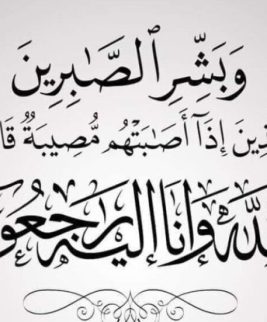 وَبَشِّرِ ٱلصَّـٰبِرِينَ
ذِينَ إِذَآ أَصَـٰبَتْهُم مُّصِيبَةٌ قَا
للَّه وَإنا إليه راجعو